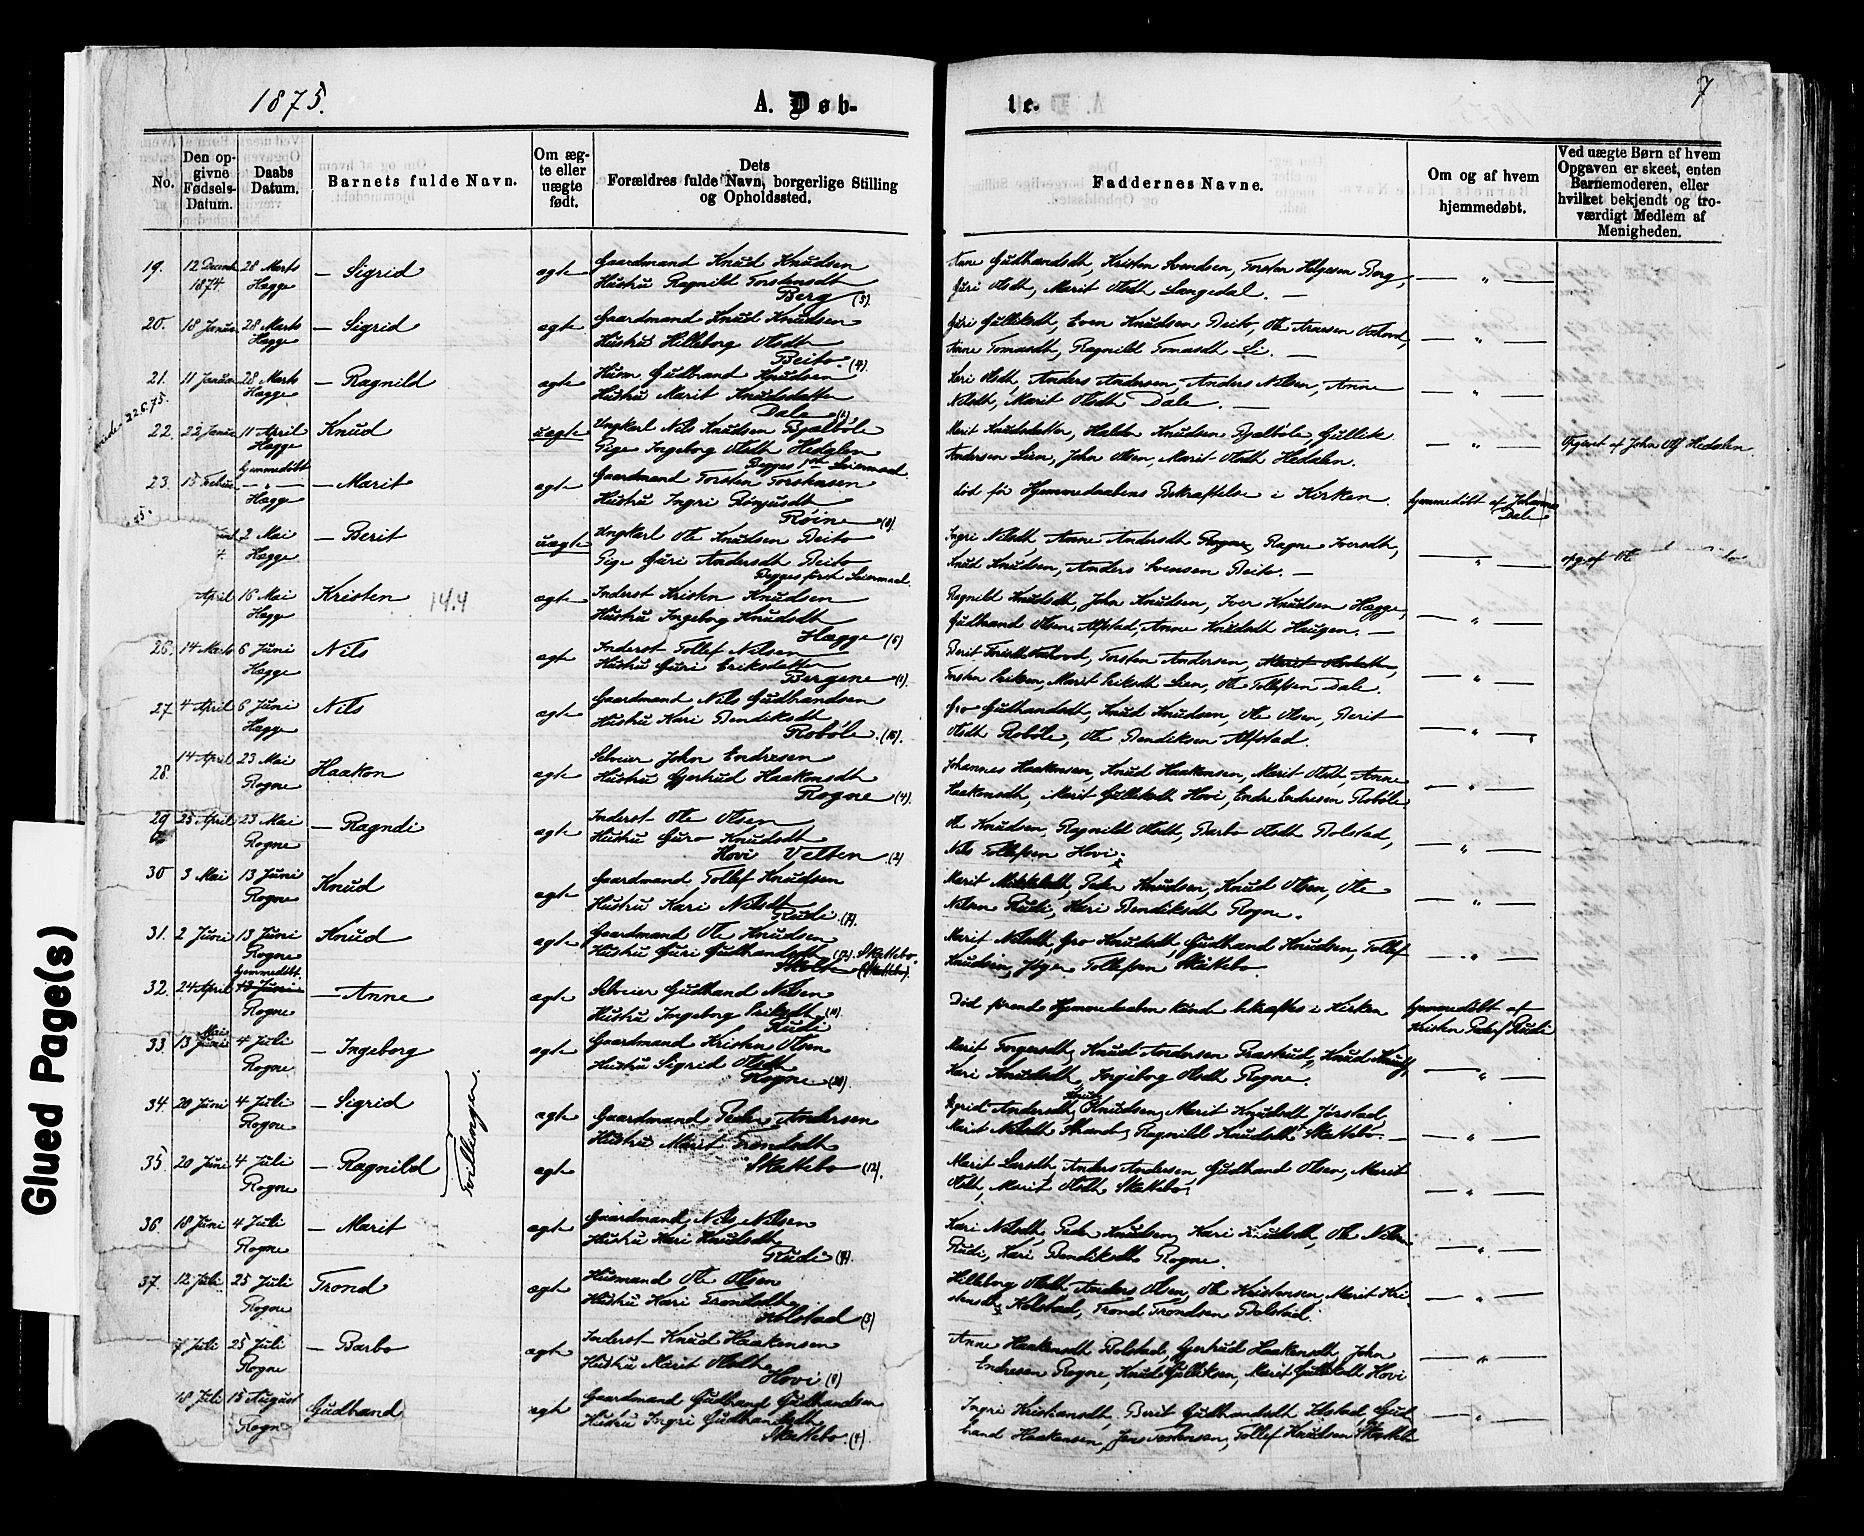 1875.
A. Døb-
te.
7
No.
Den op-
givne
Fødsels-
Datum.
Daabs
Datum.
Barnets fulde Navn.
Om æg-
te eller
uægte
født.
Dets
Forældres fulde Navn, borgerlige Stilling
og Opholdssted.
Faddernes Navne.
Om og af hvem
hjemmedøbt.
Ved uægte Børn af hvem
Opgaven er skeet, enten
Barnemoderen, eller
hvilket bekjendt og tro-
værdigt Medlem af
Menigheden.
19. 12 Decemb 28 Marts — Sigrid ægte Gaardmand Knud Knudsen
1874. Hægge Hustru Ragnild Torstensdt
Berg
Anne Gudbrandsdt, Kristen Svendsen, Torsten Helgesen Berg,
Guri Olsdt, Marit Olsdt Langedal. —
20. 18 Januar 28 Marts — Sigrid ægte Gaardmand Knud Knudsen
Hægge Hustru Hilleborg Olsdt
Beito. (4)
Guri Gulliksdt, Even Knudsen Beito, Ole Arnesen
Anne Tomasdt, Ragnild Tomasdt Li. —
21. 11 Januar 28 Marts — Ragnild ægte Husm. Gudbrand Knudsen
Hægge Hustru Marit Knudsdatter
Dale
Kari Olsdt, Anders Andersen, Anders Nilsen, Anne
Nilsdt, Marit Olsdt Dale. —
22. 22 Janua 11 April Knud uægte Ungkarl Nils Knudsen Bjelbøle
Hægge Pige Ingeborg Olsdt Hedalen
Begges 1ste Leiermaal
Marit Knudsdatter, Haldor Knudsen Bjelbøle, Gullik
Andersen Lien, John Olsen, Marit Olsdt Hedalen.
Opgivet af John Ols Hedalen
23. 15 Februar Hjemmedøbt — Marit ægte Gaardmand Torsten Torstensen
Hægge Hustru Ingri
Røine (8)
død før Hjemmedaabens Bekræftelse i Kirken. hjemmedøbt af Johannes
Dale
2 Mai — Berit uægte Ungkarl Ole Knudsen Beito
Hægge Pige Guri Andersdt Beito
Begges første Leiermaal.
Ingri Nilsdt, Anne Andersdt Rogne, Ragne Iversdt,
Knud Knudsen, Anders Svensen Beito. —
opg. af Ole
April 16 Mai Kristen 14.4 ægte Inderst Kristen Knudsen
Hægge Hustru Ingeborg Knudsdt
Hægge (6)
Ragnild Knudsdt, John Knudsen, Iver Knudsen Hægge,
Gudbrand Olsen Alfstad, Anne Knudsdt Haugen. —
26. 14 Marts 6 Juni Nils ægte Inderst Tollef Nilsen
Hægge Hustru Guri Eriksdatter
Bergene (1)
Berit Torsten Andersen,
Torsten Eriksen, Marit Eriksdt Lien, Ole Tollefsen Dale.
27 4 April 6 Juni Nils ægte Gaardmand Nils Gudbrandsen
Hægge Hustru Kari Bendiksdt
Robøle. (10).
Gro Gudbrandsdt, Knud Knudsen, Ole Olsen, Berit
Olsdt Robøle, Ole Bendiksen Alfstad.
28 14 April 23 Mai Haakon ægte Selveier John Endresen
Rogne Hustru Gjertrud Haakensdt
Rogne (4).
Johannes Haakensen, Knud Haakensen, Marit Olsdt, Anne
Haakensdt, Marit Gulliksdt Hovi, Endre Endresen Robøle.
29 25 April 23 Mai — Ragndi ægte Inderst Ole Olsen
Rogne Hustru Guro Knudsdt
Hovi Velten (2)
Ole Knudsen, Ragnild Olsdt, Barbo Olsdt Bolstad,
Nils Tollefsen Hovi.
30 3 Mai 13 Juni Knud ægte Gaardmand Tollef Knudsen
Rogne Hustru Kari Nilsdt
Rudi (7).
Marit Peder Knudsen, Knud Olsen, Ole
Nilsen Rudi, Kari Bendiksdt Rogne.
31. 2 Juni 13 Juni Knud ægte Gaardmand Ole Knudsen
Rogne Hustru Guri Gudbrandsdt Skattebo
(Skattebo).
Marit Nilsdt, Gro Knudsdt, Gudbrand Knudsen, Tollef
Knudsen, Tollefsen Skattebo.
32. 24 April hjemmedøbt. 13 Juni — Anne ægte Selveier Gudbrand Nilsen
Rogne Hustru Ingeborg Eriksdt
Rudi
Død førend Hjemmedaaben kunde bekræftes i Kirken hjemmedøbt af
Kristen Peders Rudi
33. 13 Mai Juni 4 Juli — Ingeborg ægte Gaardmand Kristen Olsen
Rogne Hustru Sigrid Olsdt
Rogne (20).
Marit Torgersdt, Knud Andersen Prestrud, Knud Knuds,
Kari Knudsdt, Ingeborg Olsdt Rogne.
34. 20 Juni 4 Juli — Sigrid ægte Gaardmand Peder Andersen
Rogne Hustru Marit Trondsdt
Tvillinger.
Sigrid Andersdt, Knudsen, Marit Knudsdt Jørstad,
Marit Nilsdt Strand, Ragnild Knudsdt Skattebo. —
35. 20 Juni 4 Juli — Ragnild ægte Skattebo (12).
Rogne
Marit Larsdt, Anders Andersen, Gudbrand Olsen, Marit
Olsdt, Marit Olsdt Skattebo.
36 18 Juni 4 Juli — Marit ægte Gaardmand Nils Nilsen
Rogne Hustru Kari Knudsdt
Rudi
Kari Nilsdt, Peder Knudsen, Kari Knudsdt, Ole Nilsen
Rudi, Kari Bendiksdt Rogne.
37. 12 Juli 25 Juli Trond ægte Husmand Ole Olsen
Rogne Hustru Kari Trondsdt
Kolstad (3)
Hilleborg Olsdt, Anders Olsen, Ole Kristensen, Marit Kri-
stensdt Kolstad, Trond Trondsen Bolstad.
7 Juli 25 Juli — Barbo ægte Inderst Knud Haakensen
Rogne Hustru Marit Olsdt
Hovi (8)
Anne Haakensdt Bolstad, Gjertrud Haakensdt, John
Endresen Rogne, Knud Gulliksen, Marit Gulliksdt Hovi
18 Juli 15 August Gudbrand ægte Gaardmand Gudbrand Gudbrandsen
Rogne Hustru Ingri Gudbrandsdt
Skattebo
Ingri Kristiansdt, Berit Gudbrandsdt Ildstad, Gud
brand Haakensen, Jens Torstensen, Tollef Knudsen Skattebo
Glued Page(s)